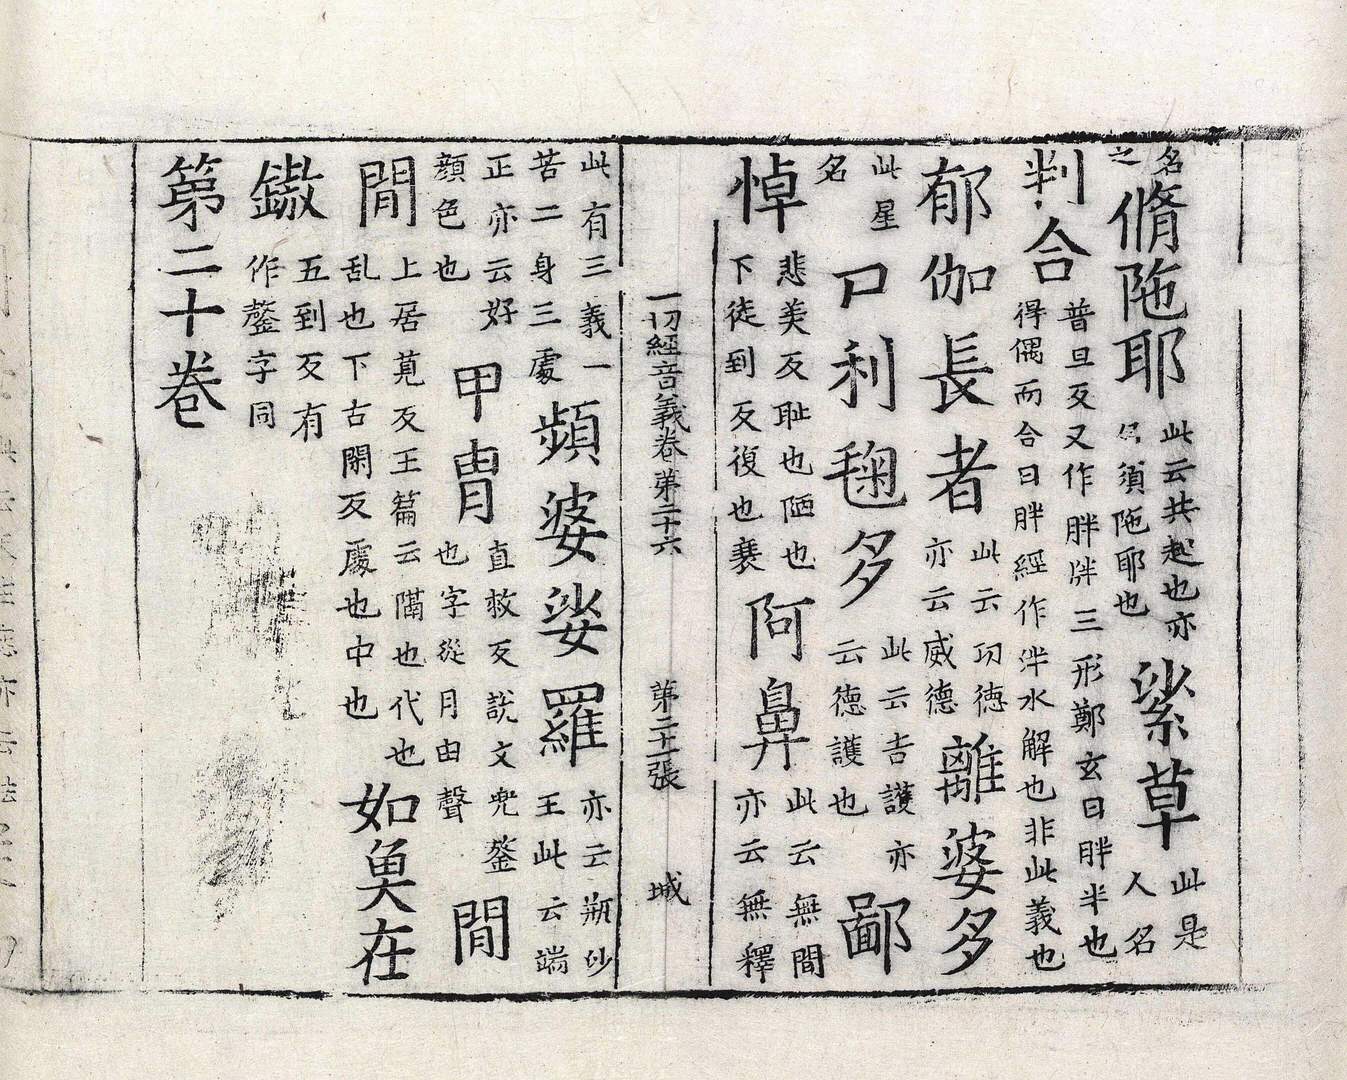 名之脩陁耶此云共起也亦名須陁耶也紫草此是人名
判合普旦反又作胖牉三形鄭玄曰胖半也得偶而合曰胖經作泮水解也非此義也
郁伽長者此云功德亦云威德離婆多
此星名尸利毱多此云吉護亦云德護也鄙
悼悲美反耻也陋也下徒到反復也哀阿鼻此云無間亦云無釋
一切經音義卷第二十六 第二十一張 城
此有三義一苦二身三處頻婆娑羅亦云瓶沙王此云端
正亦云好顔色也甲冑直救反說文兜鍪也字從月由聲間
間上居莧反玉篇云隔也代也乱也下古閑反處也中也如魚在
五到反有作鏊字同
第二十卷